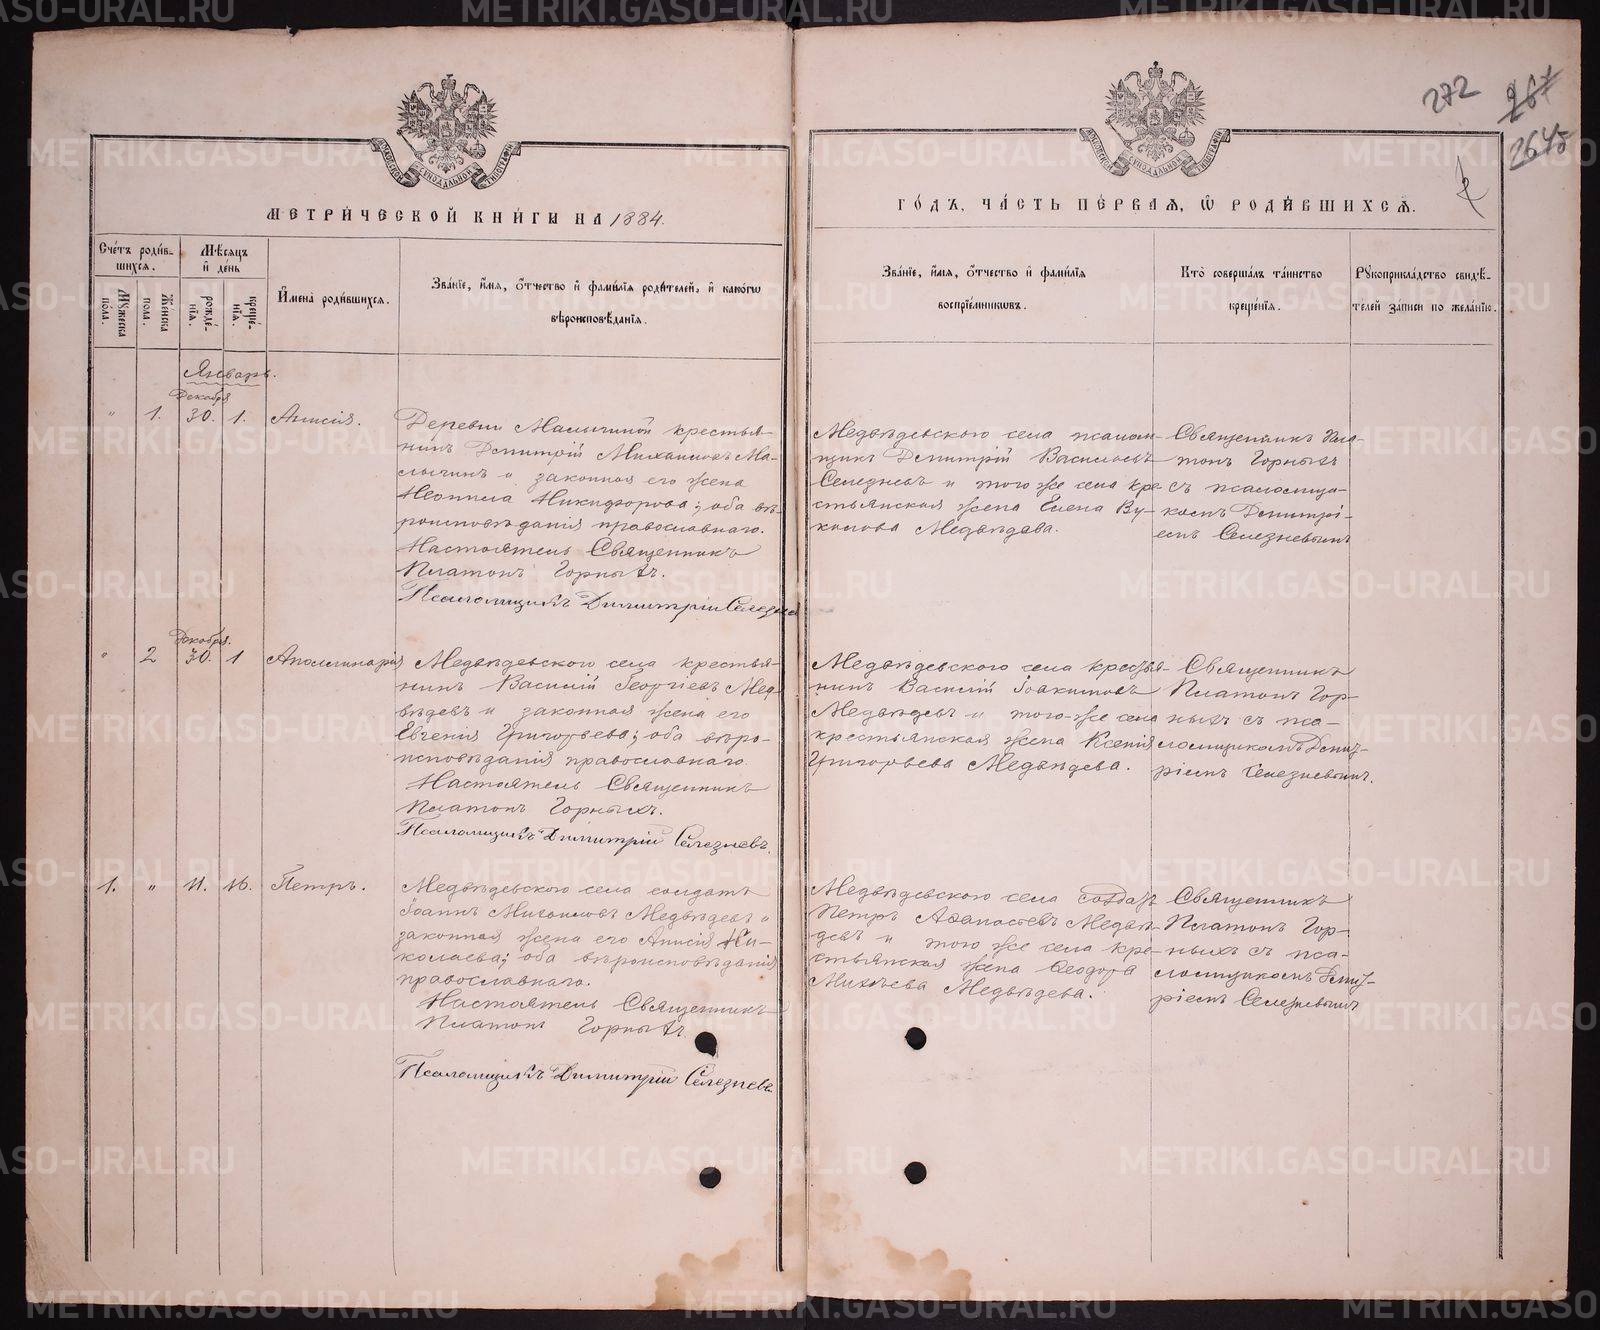 272
267
2645
МОСКОВСКОЙ СѴНОДАЛЬНОЙ ТИПОГРАФІИ
МОСКОВСКОЙ СѴНОДАЛЬНОЙ ТИПОГРАФІИ
МЕТРИ́ЧЕСКОЙ КНИ́ГИ НА 1884.
ГО́ДЪ, ЧА́СТЬ ПЕ́РВАЯ, Ѡ РОДИ́ВШИХСЯ.
Сче́тъ роди́в-
шихся.
Му́жеска по́ла.
Же́нска по́ла.
Мѣ́сяцъ
и де́нь
рожде́-
нїя.
креще́-
нїя.
Имена̀ роди́вшихся.
Зва́нїе, и́мя, о́тчество и фами́лїя роди́телей, и како́гѡ
вѣроисповѣ́данїя.
Зва́нїе, и́мя, о́тчество и фами́лїя
воспрїе́мниковъ.
Кто̀ соверша́лъ та́инство
креще́нїя.
Рꙋкоприкла́дство свидѣ́-
телей за́писи по жела́нїю.
Январь.
Декабря
" 1. 30. 1. Анисія.
Деревни Малыгиной крестья-
нинъ Дмитрій Михаиловъ Ма-
лыгинъ и законная его жена
Неонила Никифорова; оба вѣ-
роисповѣданія православнаго.
Настоятель Священникъ
Платонъ Горныхъ.
Псаломщикъ Димитрій Селезнев
Медвѣдевского села псалом-
щикъ Дмитрій Васильевъ
Селезневъ и того же села кре-
стьянская жена Елена Ву-
колова Медвѣдева.
Священникъ Пла-
тонъ Горныхъ
съ псаломщи-
комъ Дмитрі-
емъ Селезневымъ
Декабря.
" 2 30. 1 Аполлинарія
Медвѣдевского села крестья-
нинъ Василій Георгіевъ Мед-
вѣдевъ и законная жена его
Евгенія Григорьева; оба вѣро-
исповѣданія православнаго.
Настоятель Священникъ
Платонъ Горныхъ.
Псаломщикъ Димитрій Селезневъ.
Медвѣдевского села крестья-
нинъ Василій Іоакимовъ
Медвѣдевъ и того-же села
крестьянская жена Ксенія
Григорьева Медвѣдева.
Священникъ
Платонъ Гор-
ныхъ съ пса-
ломщикомъ Дмит-
ріемъ Селезневымъ.
1. " 11. 16. Петръ.
Медвѣдевского села солдатъ
Іоаннъ Михаиловъ Медвѣдевъ и
законная жена его Анисія Ни-
колаева; оба вѣроисповѣданія
православнаго.
Настоятель Священникъ
Платонъ Горныхъ
Псаломщикъ Димитрій Селезневъ.
Медвѣдевского села солдатъ
Петръ Аѳанасьевъ Медвѣ-
девъ и того же села кре-
стьянская жена Ѳеодора
Михѣева Медвѣдева.
Священникъ
Платонъ Гор-
ныхъ съ пса-
ломщикомъ Дмит-
ріемъ Селезневымъ
METRIKI.GASO-URAL.RU